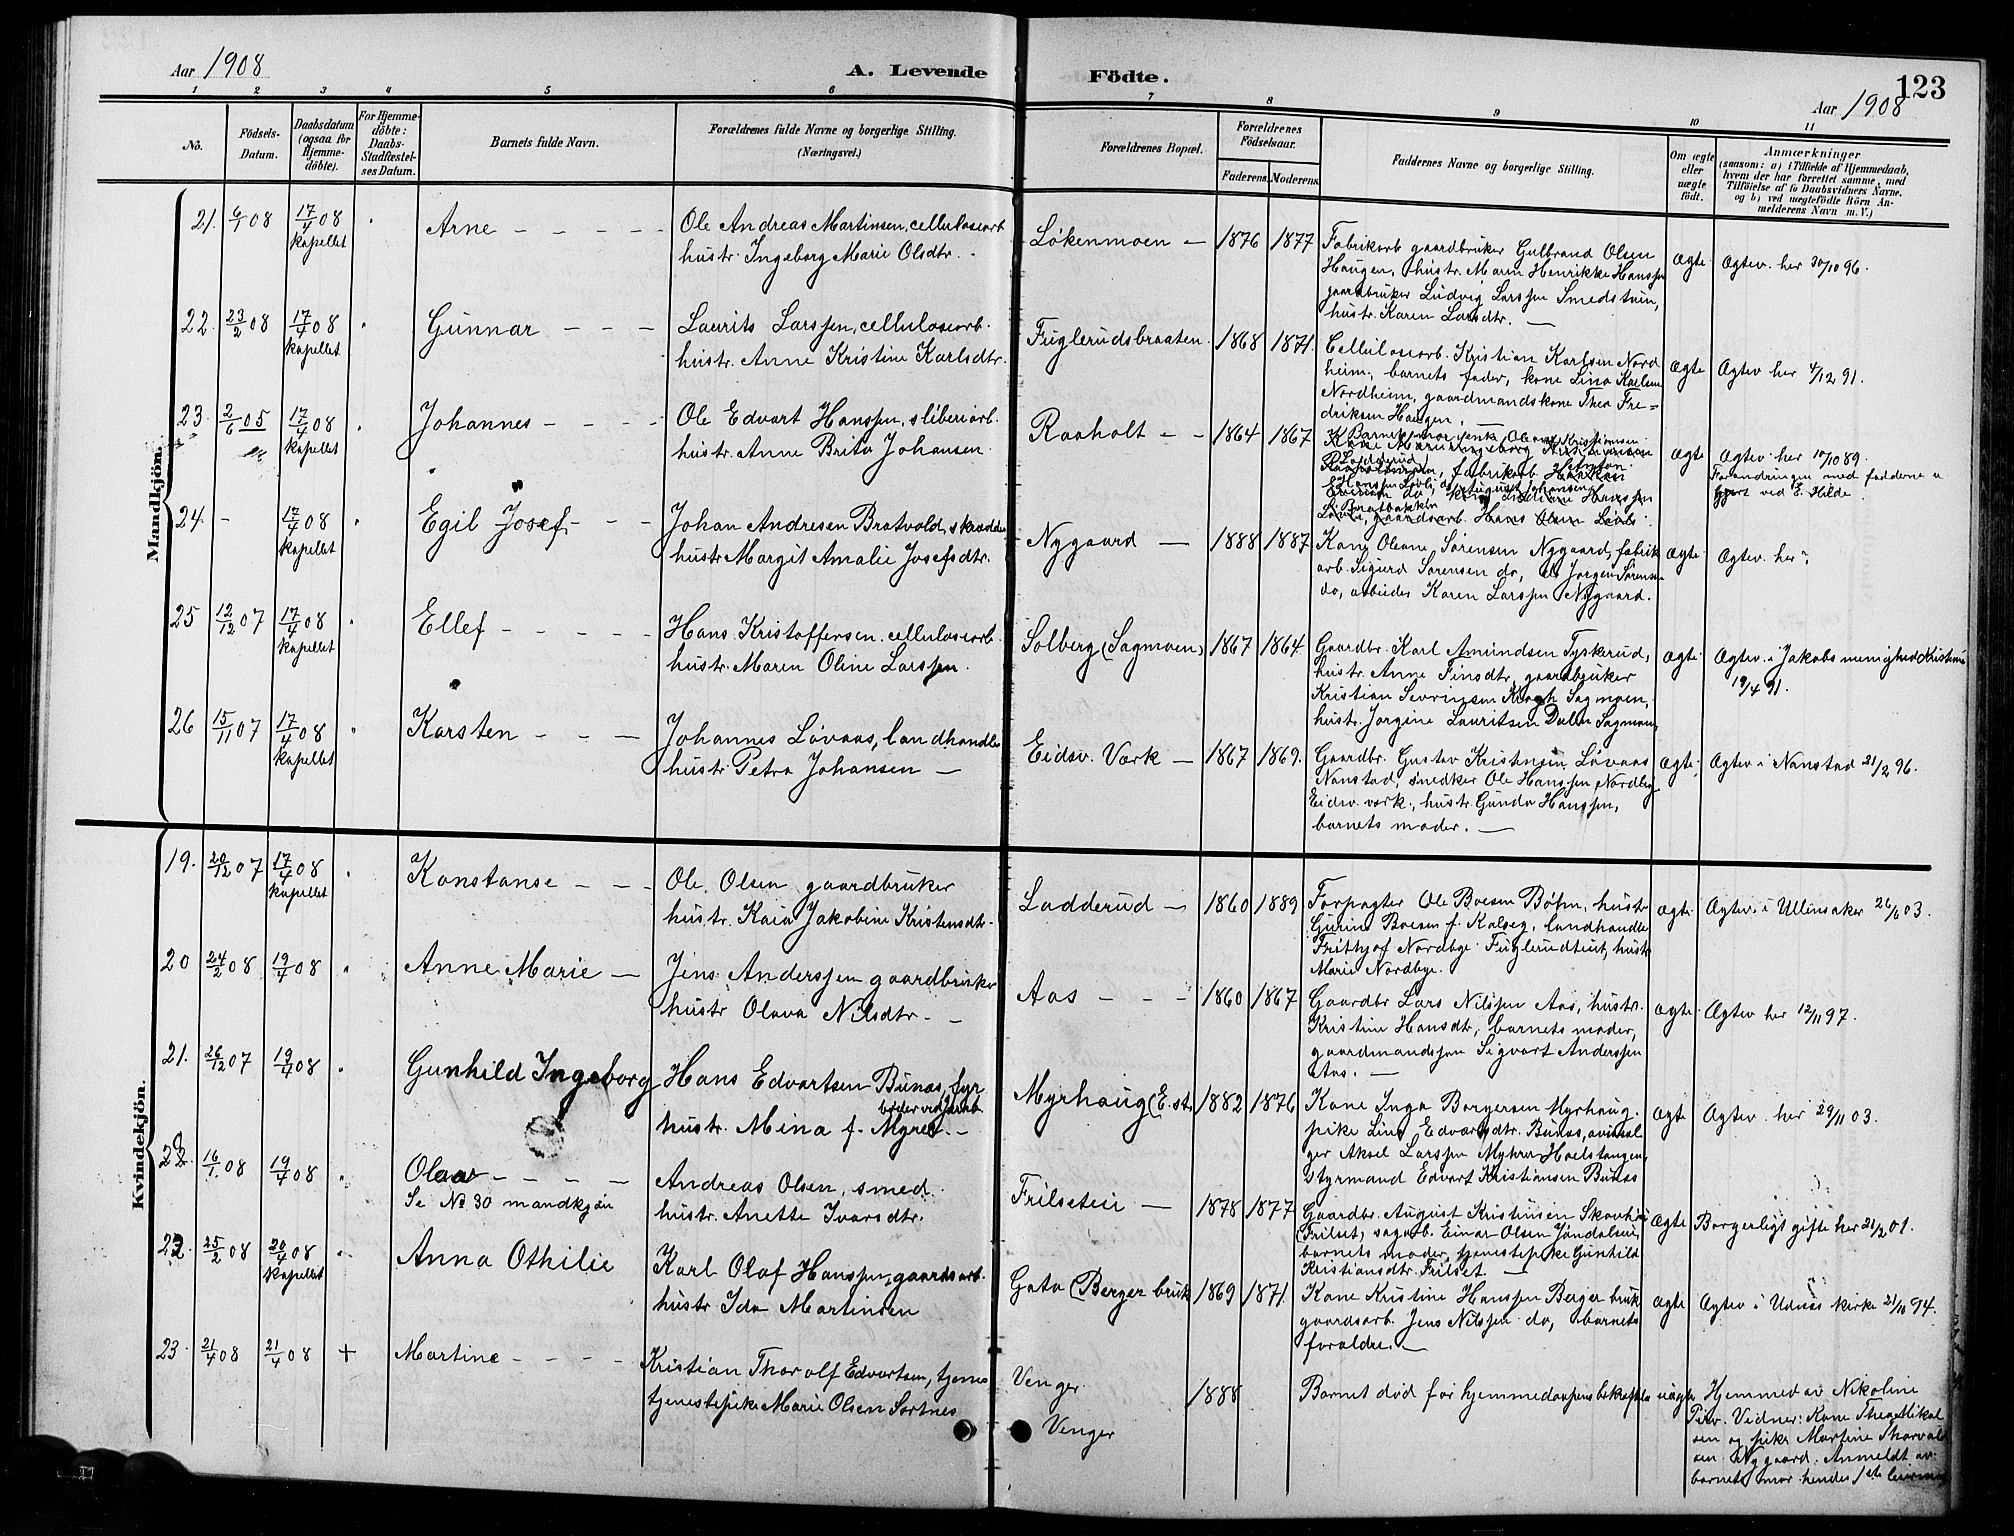 Aar 1908
A. Levende
Födte.
123
Aar 1908
1 2 3 4 5 6 7 8 9 10 11
No.
Födsels-Datum.
Daabsdatum (ogsaa for Hjemmedöbte).
For Hjemmedöbte: Daabs-Stadfæstelses Datum.
Barnets fulde Navn.
Forældrenes fulde Navne og borgerlige Stilling.
(Næringsvei.)
Forældrenes Bopæl.
Forældrenes Födselsaar.
Faderens. Moderens.
Faddernes Navne og borgerlige Stilling.
Om ægte eller uægte födt.
Anmærkninger
(saasom: a) i Tilfælde af Hjemmedaab, hvem der har forrettet samme, med Tilföielse af to Daabsvidners Navne, og b) ved uægtefödte Börn Anmelderens Navn m. V.)
Mandkjön.
21. 6/1 08 17/4 08 kapellet Arne
Ole Andreas Martinsen, cellulosearb
hustr. Ingeborg Marie Olsdtr.
Løkenmoen 1876 1877
Fabrikarb gaardbruker Gulbrand Olsen
Haugen, hustr. Maren Henrikke Hanssen
gaardbruker Ludvig Larssen Smedstuin,
hustr. Karen Larsdtr.
ægte Ægtev. her 30/10 96.
22. 23/2 08 17/4 08 kapellet Gunnar
Laurits Larssen, cellulosearb.
hustr. Anne Kristine Karlsdtr.
Fuglerudsbraaten 1868 1871.
Cellulosearb. Kristian Karlsen Nord
heim, barnets fader, kone Lina Karlsen
Nordheim, gaardmandskone Thea Fre-
driksen Haugen.
ægte Ægtev her 4/12 91.
23. 2/6 05 17/4 08 kapellet Johannes
Ole Edvart Hanssen, sliberiarb.
hustr. Anne Brita Johansen.
Raaholt 1864 1867
ægte Ægtev. her 10/10 89.
Forandringen med fadderne
gjort ved E. Hilde.
24. - 17/4 08 kapellet Egil Josef
Johan Andresen Bratvold, skrædder
hustr. Margit Amalie Josefsdtr.
Nygaard 1888 1887
Kone Oleane Sørensen Nygaard, fabrik
arb. Sigurd Sørensen do, do Jørgen Sørensen
do, arbeider Karen Larssen Nygaard.
ægte Ægtev. her?
25 12/12 07 17/4 08 kapellet Ellef
Hans Kristoffersen. cellulosearb.
hustr. Maren Oline Larssen.
Solberg (Sagmoen) 1867 1864
Gaardbr. Karl Amundsen Tyskerud,
hustr. Anne Finsdtr, gaardbruker
Kristian Sevrinsen Krogh Sagmoen,
hustr. Jørgine Lauritsen Dalen Sagmoen,
ægte Ægtev. i Jakobs menighed Kristiania
19/4 91.
26 15/11 07 17/4 08 kapellet Karsten
Johannes Løvaas, landhandler
hustr Petra Johansen
Eidsv. Værk 1867 1869.
Gaardbr. Gustav Kristiansen Løvaas
Nanstad, snedker Ole Hanssen Nordby
Eidsv. værk, hustr. Gunda Hanssen,
barnets moder.
ægte Ægtev i Nanstad 21/2 96.
Kvindekjön.
19. 20/12 07 17/4 08 kapellet Konstanse
Ole Olsen gaardbruker
hustr. Kaia Jakobine Kristensdtr.
Ladderud 1860 1889
Forpagter Ole Boesen Bøhn, hustr
Gurine Boesen f. Kalseg, landhandler
Frithjof Nordbye Fuglerudteiet, hustr
Marie Nordbye.
ægte Ægtev. i Ullensaker 26/6 03.
20 24/2 08 19/4 08 Anne Marie
Jens Anderssen gaardbruker
hustr Olava Nilsdtr.
Aas 1860 1867
Gaardbr Lars Nilssen Aas, hustr.
Kristine Hansdtr, barnets moder,
gaardmandssøn Sigvart Anderssen
Aas.
ægte Ægtev her 12/11 97.
21. 26/12 07 19/4 08 Gunhild Ingeborg
Hans Edvartsen Bunæs, fyr
bøter ved jernb.
hustr. Mina f. Myrer.
Myrhaug (E. st.) 1882 1876
Kone Inga Borgersen Myrhaug.
pike Lina Edvarsdtr. Bunæs, avissæl
ger Aksel Larssen Myhrer Hoelstangen,
styrmand Edvart Kristiansen Bunæs
ægte Ægtev. her 29/11 03.
22 16/1. 08 19/4 08 Olaa
Se No 30 mandkjøn
Andreas Olsen, smed.
hustr. Anette Ivarsdtr.
Frilseteie 1878 1877
Gaardbr. August Kristiansen Skovhei
(Frilset, sagarb. Einar Olsen Jøndalseie,
barnets moder, tjenestepike Gunhild
Kristiansdtr. Frilset.
ægte Borgerligt gifte her 21/2 01.
22. 25/2 08 20/4 08 kapellet Anna Othilie
Karl Olaf Hanssen, gaardsarb.
hustr Ida Martinsen
Gata (Berger bruk 1869 1871.
Kone Kristine Hanssen Berger bruk
gaardsarb. Jens Nilssen do, barnets
forældre.
ægte Ægtev i Udnes kirke 21/10 94.
23 21/4 08 21/4 08 + Martine
Kristian Thoralf Edvartsen, tjener
tjenestepike Marie Olsen Sørtnes
Venger
Venger
1888
Barnet død før hjemmedaapens bekræftelse
uægte Hjemmed av Nikoline
Vidner: Kone Thea Mikal
sen og pike Martine Thorvald
sen Nygaard. Anmeldt av
barnets mor hendes 1ste